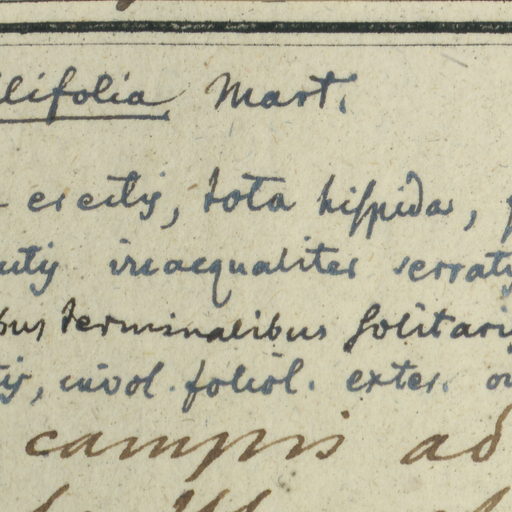 lifolia Mart.
erectis, tota hispida,
utis inaequaliter serratis
bus terminalibus solitariis
tis, invol. foliol. exter.
campis ad